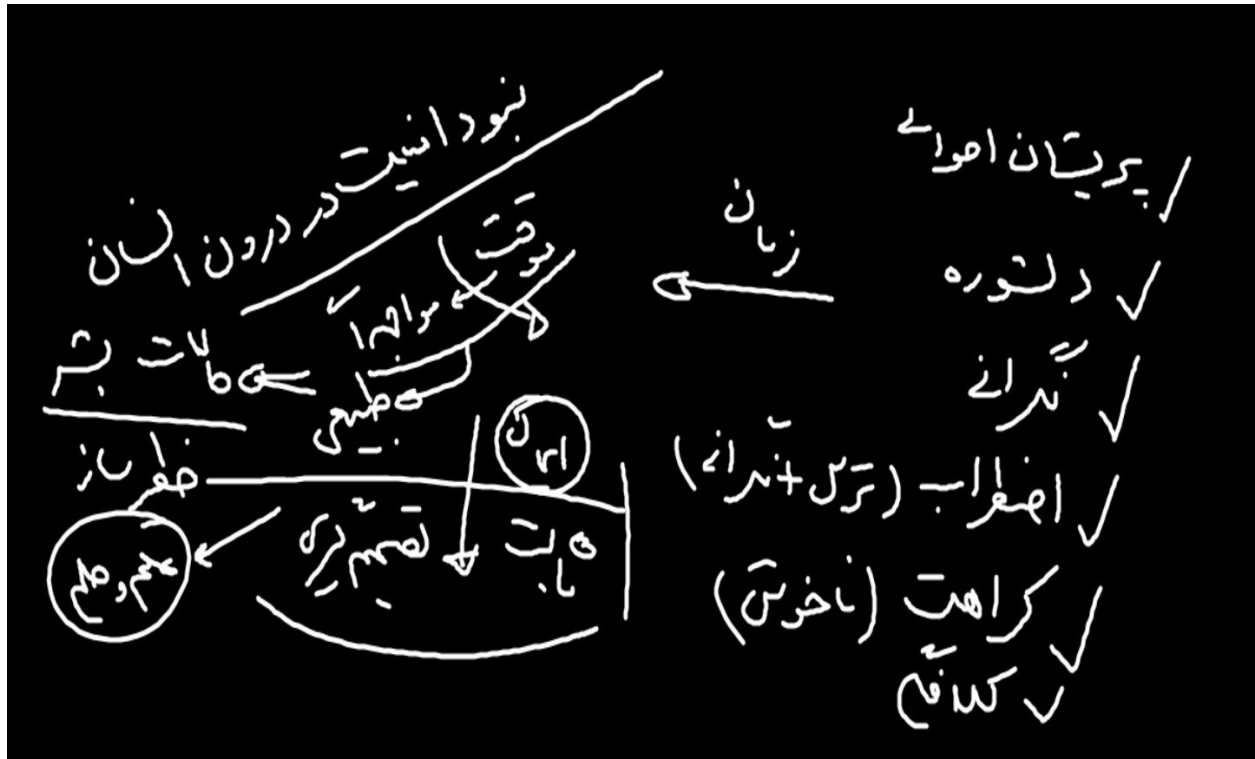 پریشان احوالی
دلشوره
نگرانی
اضطراب (ترس + نگرانی)
کراهت (ناخوشی)
کلافگی
زبان
نبود امنیت در درون انسان
موقت
طبیعی
حالات بشر
ثابت
تصمیم گیری
خطر ساز